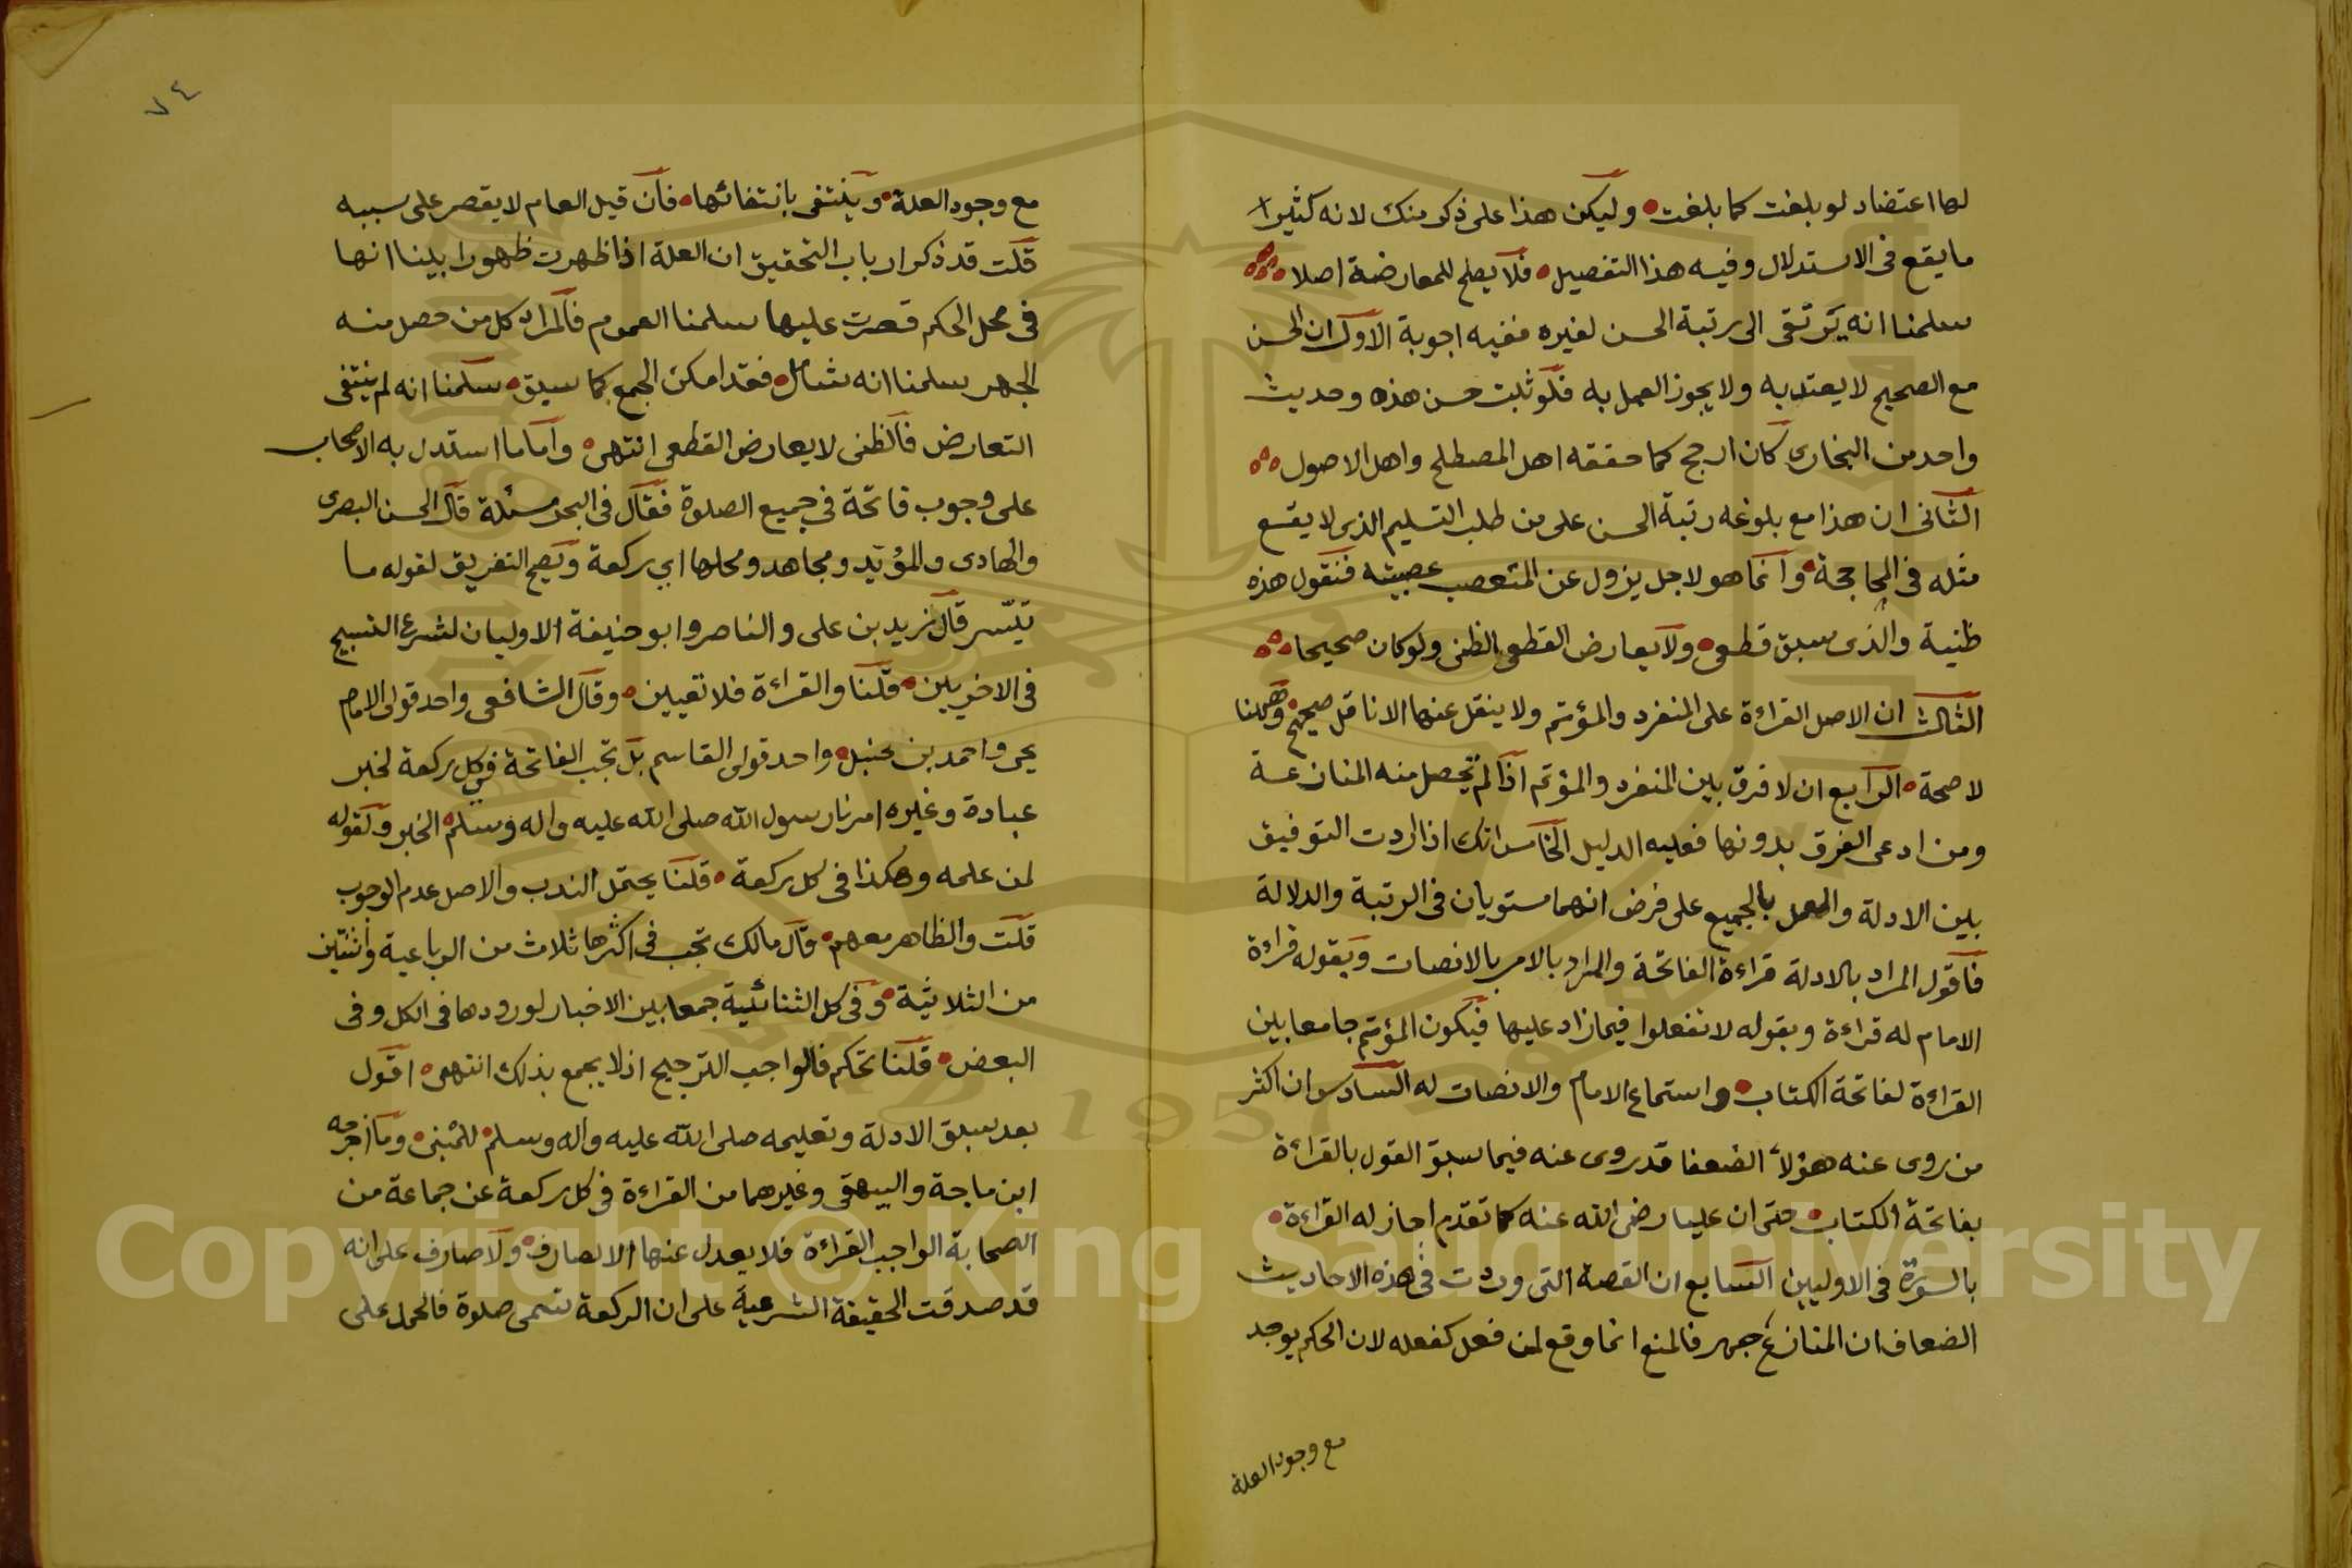 لها اعتضاد لو بلغت كما بلغت وليكن هذا على ذكر منك لانه كثيرا
ما يقع فى الاستدلال وفيه هذا التفصيل فلا يصلح للمعارضة اصلا
سلمنا انه يرتقى الى رتبة الحسن لغيره ففيه اجوبة الاول ان الحسن
مع الصحيح لا يعتد به ولا يجوز العمل به فلو ثبت حسن هذه وحديث
واحد من البخارى كان ارجح كما حققه اهل المصطلح واهل الاصول
الثانى ان هذا مع بلوغه رتبة الحسن على من طلب التسليم الذى لا يقع
مثله فى المحاججة وانما هو لاجل يزول عن المتعصب عصبيته فنقول هذه
ظنية والذى سبق قطعى ولا يعارض القطعى الظنى ولو كان صحيحا
الثالث ان الاصل القراءة على المنفرد والمؤتم ولا ينقل عنها الا ناقل صحيح وههنا
لا صحة الرابع ان لا فرق بين المنفرد والمؤتم اذا لم تحصل منه المنازعة
ومن ادعى الفرق بدونها فعليه الدليل الخامس انك اذا اردت التوفيق
بين الادلة والعمل بالجميع على فرض انهما مستويان فى الرتبة والدلالة
فاقول المراد بالادلة قراءة الفاتحة والمراد بالامر بالانصات وبقوله قراءة
الامام له قراءة وبقوله لا تفعلوا فيما زاد عليها فيكون المؤتم جامعا بين
القراءة لفاتحة الكتاب واستماع الامام والانصات له السادس ان اكثر
من روى عنه هؤلاء الضعفا قد روى عنه فيما سبق القول بالقراءة
بفاتحة الكتاب حتى ان عليا رضى الله عنه كما تقدم اجاز له القراءة
بالسورة فى الاوليين السابع ان القصة التى وردت فى هذه الاحاديث
الضعاف ان المنازع جهر فالمنع انما وقع لمن فعل كفعله لان الحكم يوجد
مع وجود العلة
٧٤
مع وجود العلة وينتفى بانتفائها فان قيل العام لا يقصر على سببه
قلت قد ذكر ارباب التحقيق ان العلة اذا ظهرت ظهورا بينا انها
فى محل الحكم قصرت عليها سلمنا العموم فالمراد كل من حصل منه
الجهر سلمنا انه شامل فقد امكن الجمع كما سبق سلمنا انه لم ينتفى
التعارض فالظنى لا يعارض القطعى انتهى واما ما استدل به الاصحاب
على وجوب فاتحة فى جميع الصلوة فقال فى البحر مسئلة قال الحسن البصرى
والهادى والمؤيد ومجاهد ومحلها اي ركعة ويصح التفريق لقوله ما
تيسر قال زيد بن على والناصر وابو حنيفة الاوليان لشرع التسبيح
فى الاخريين قلنا والقراءة فلا تعيين وقال الشافعى واحد قولى الامام
يحيى واحمد بن حنبل واحد قولى القاسم بل تجب الفاتحة فى كل ركعة لخبر
عبادة وغيره امرنا رسول الله صلى الله عليه واله وسلم الخبر ولقوله
لمن علمه وهكذا فى كل ركعة قلنا يحتمل الندب والاصل عدم الوجوب
قلت والظاهر معهم قال مالك تجب فى اكثرها ثلاث من الرباعية واثنتين
من الثلاثية وفى كل الثنائية جمعا بين الاخبار لورودها فى الكل وفى
البعض قلنا تحكم فالواجب الترجيح اذ لا يجمع بذلك انتهى اقول
بعد سبق الادلة وتعليمه صلى الله عليه واله وسلم وما اخرجه
ابن ماجة والبيهقى وغيرهما من القراءة فى كل ركعة عن جماعة من
الصحابة الواجب القراءة فلا يعدل عنها الا لصارف ولا صارف على انه
قد صدقت الحقيقة الشرعية على ان الركعة تسمى صلوة فالحمل على
Copyright © King Saud University
1957